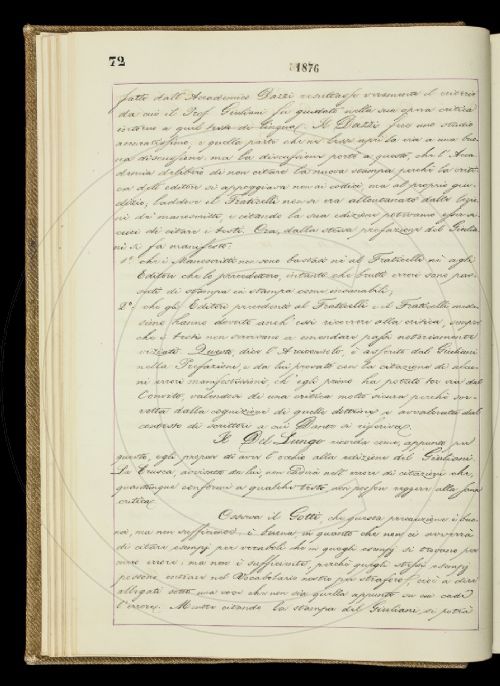 72
1876
fatto dall'Accademico Dazzi resultasse veramente il criterio
da cui il Prof. Giuliani fu guidato nella sua opera critica
intorno a quel testo di lingua. Il Dazzi fece uno studio
accuratissimo, e quella parte che ne lesse aprì la via a una buo-
na discussione. ma la discussione portò a questo, che l'Acca-
demia deliberò di non citare la nuova stampa, perchè la criti-
ca dell'editore si appoggiava non ai codici ma al proprio giu-
dizio, laddove il Fraticelli non si era allontanato dalle lezio-
ni de' manoscritti, e citando la sua edizione potevamo esser si-
curi di citare i testi. Ora, dalla stessa prefazione del Giulia-
ni si fa manifesto:
1º che i Manoscritti non sono bastati nè al Fraticelli nè agli
Editori che lo precedettero, intanto che brutti errori sono pas-
sati di stampa in stampa come insanabili;
2º che gli Editori precedenti al Fraticelli e il Fraticelli mede-
simo hanno dovuto anch'essi ricorrere alla critica, sempre
che i testi non servivano a emendare passi notoriamente
viziati. Questo, dice l'Arciconsolo, è asserito dal Giuliani
nella Prefazione, e da lui provato con la citazione di alcu-
ni errori manifestissimi, ch'egli primo ha potuto tor via dal
Convito, valendosi di una critica molto sicura perchè sor-
retta dalla cognizione di quelle dottrine e avvalorata dal
confronto di scrittori a cui Dante si riferiva.
Il Del Lungo ricorda come, appunto per
questo, egli propose di aver l'occhio alla edizione del Giuliani.
La Crusca, avvisata da lui, non cadrà nell'errore di citazioni che,
quantunque conformi a qualche testo, non posson reggere alla sana
critica.
Osserva il Gotti, che questa precauzione è buo-
na, ma non sufficiente. è buona, in quanto che non ci avverrà
di citare esempj per vocaboli che in quegli esempj si trovano per
mero errore; ma non è sufficiente, perchè quegli stessi esempj
possono entrare nel Vocabolario nostro per straforo, cioè a dire
allegati sotto una voce che non sia quella appunto su cui cade
l'errore. Mentre citando la stampa del Giuliani, si potrà